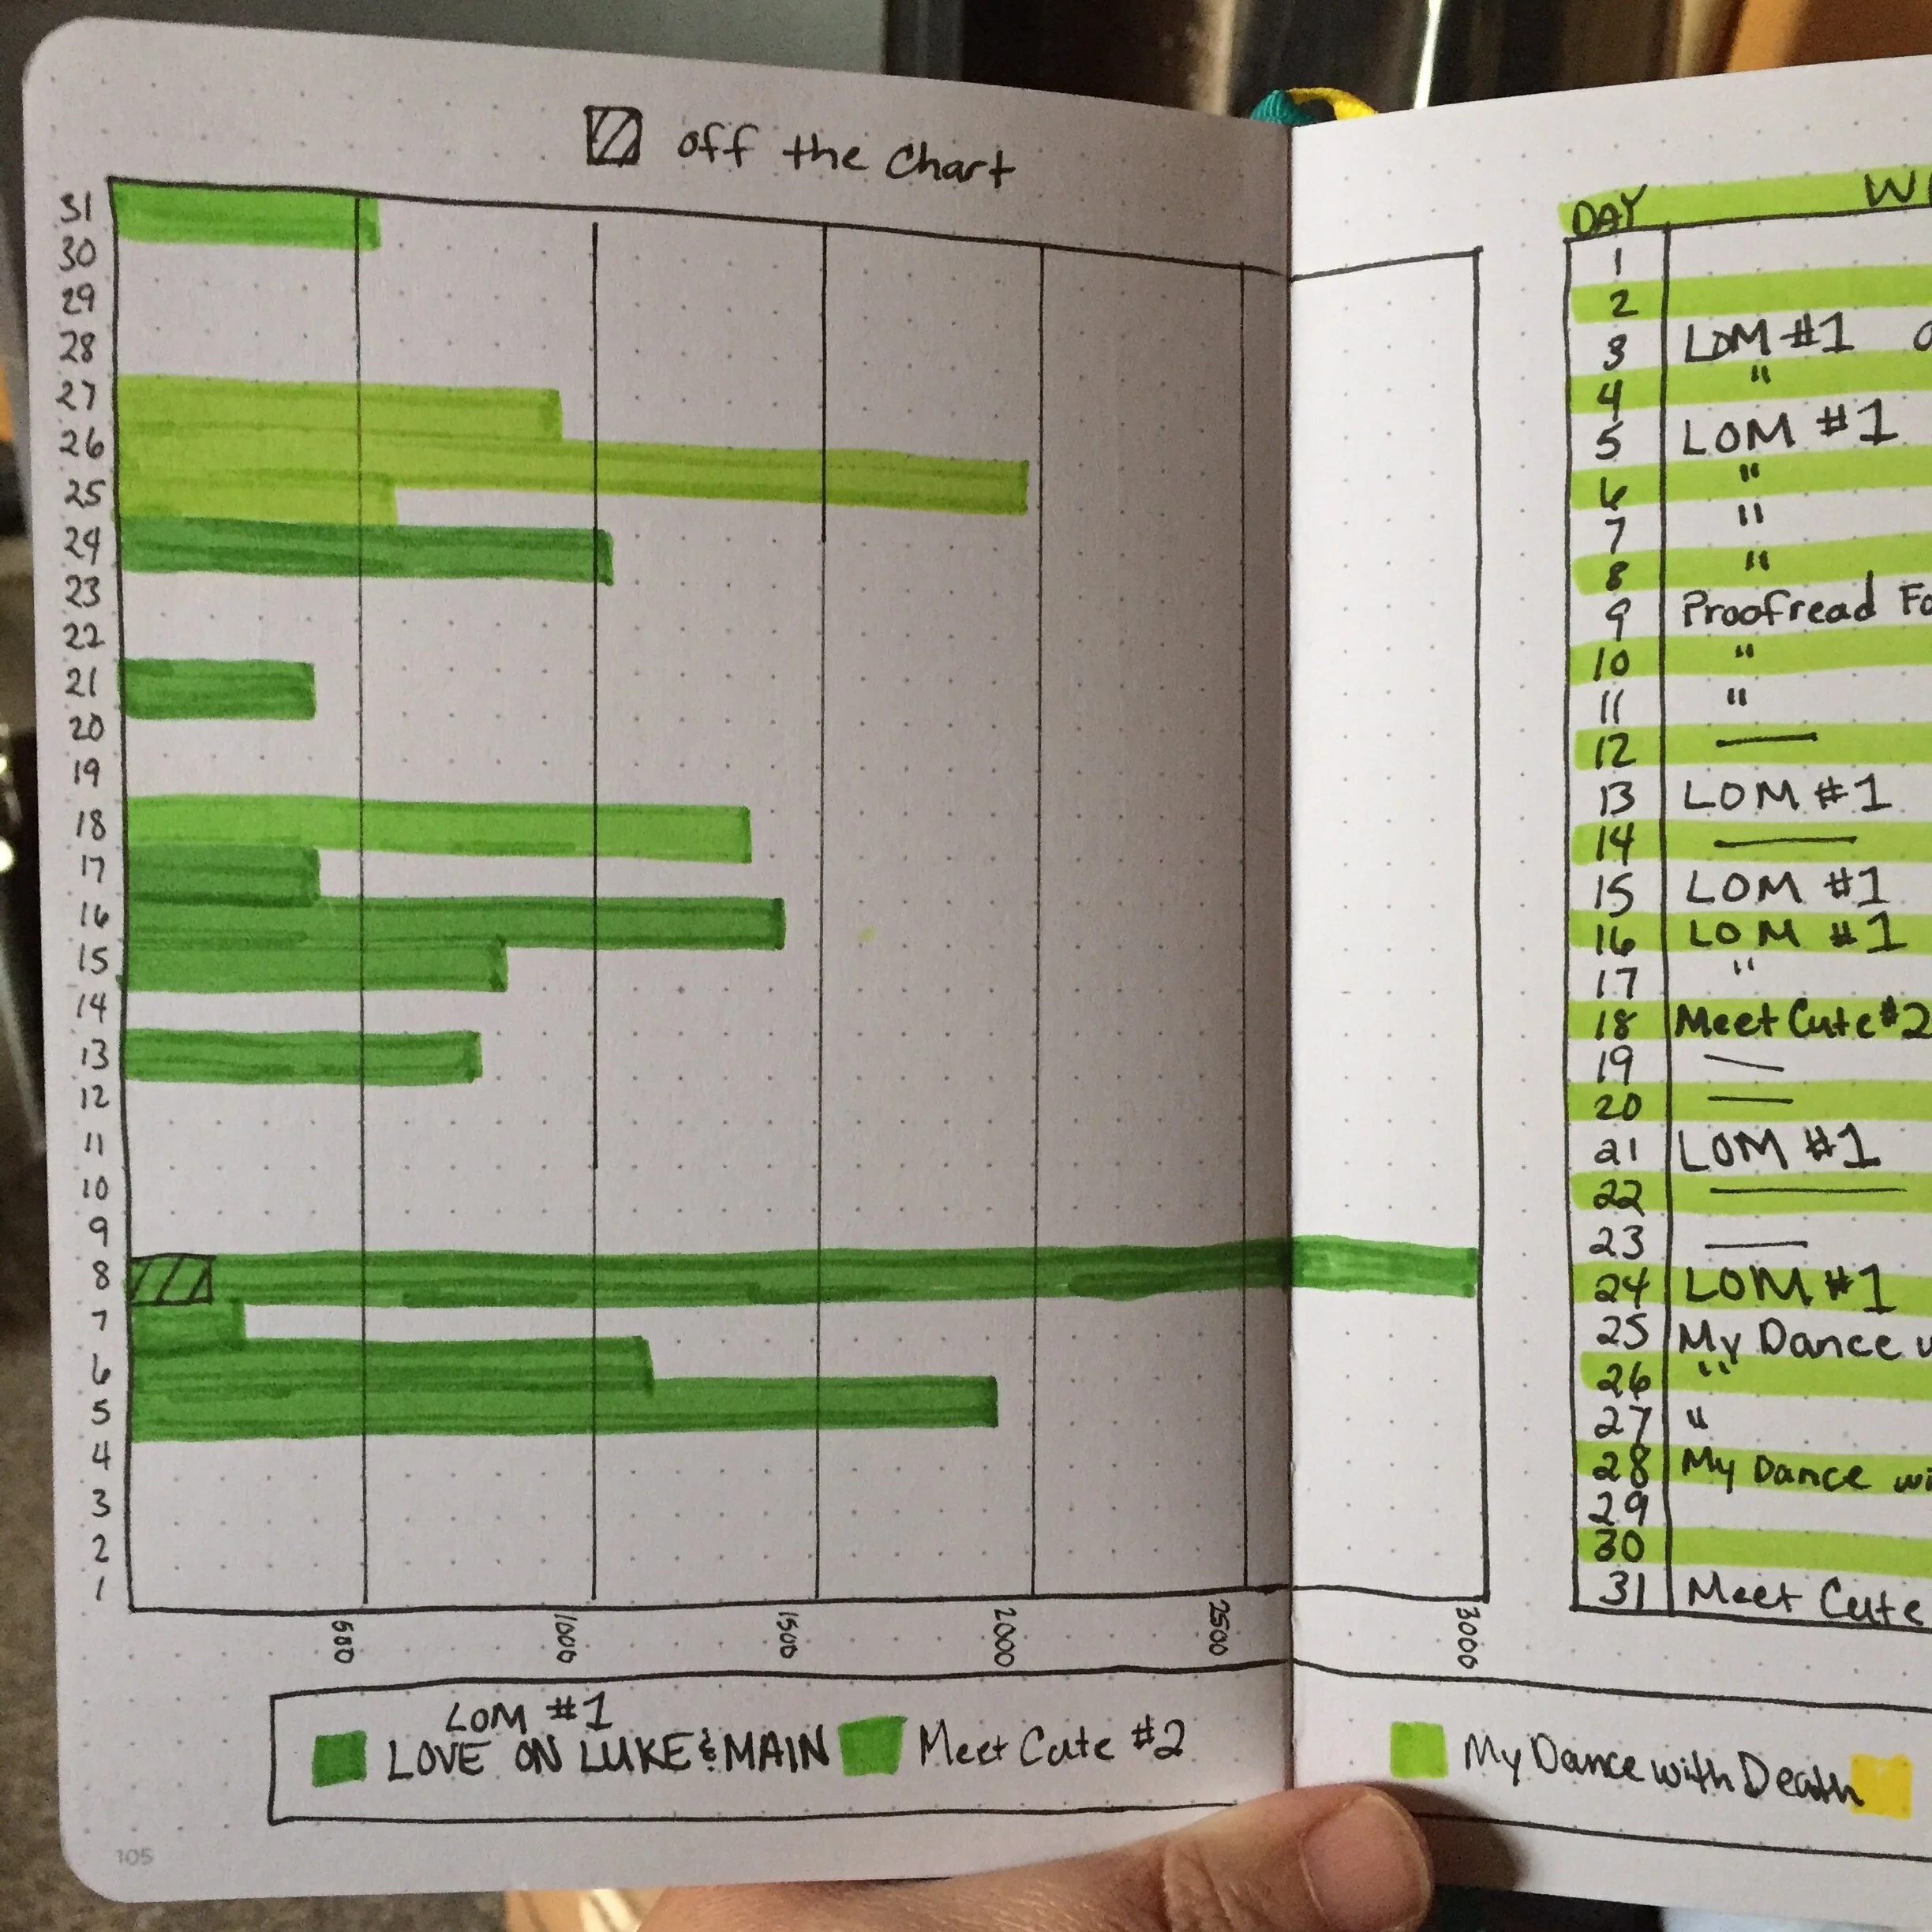 off the Chart
31
30
29
28
27
26
25
24
23
22
21
20
19
18
17
16
15
14
13
12
11
10
9
8
7
6
5
4
3
2
1
500 1000 1500 2000 2500 3000
LOM #1
LOVE ON LUKE & MAIN Meet Cute #2
105
DAY
1
2
3 LOM #1
4 "
5 LOM #1
6 "
7 "
8 "
9 Proofread
10 "
11 "
12 —
13 LOM #1
14 —
15 LOM #1
16 LOM #1
17 "
18 Meet Cute #2
19 —
20 —
21 LOM #1
22 —
23 —
24 LOM #1
25 My Dance
26 "
27 "
28 My Dance
29
30
31 Meet Cute
My Dance with Death